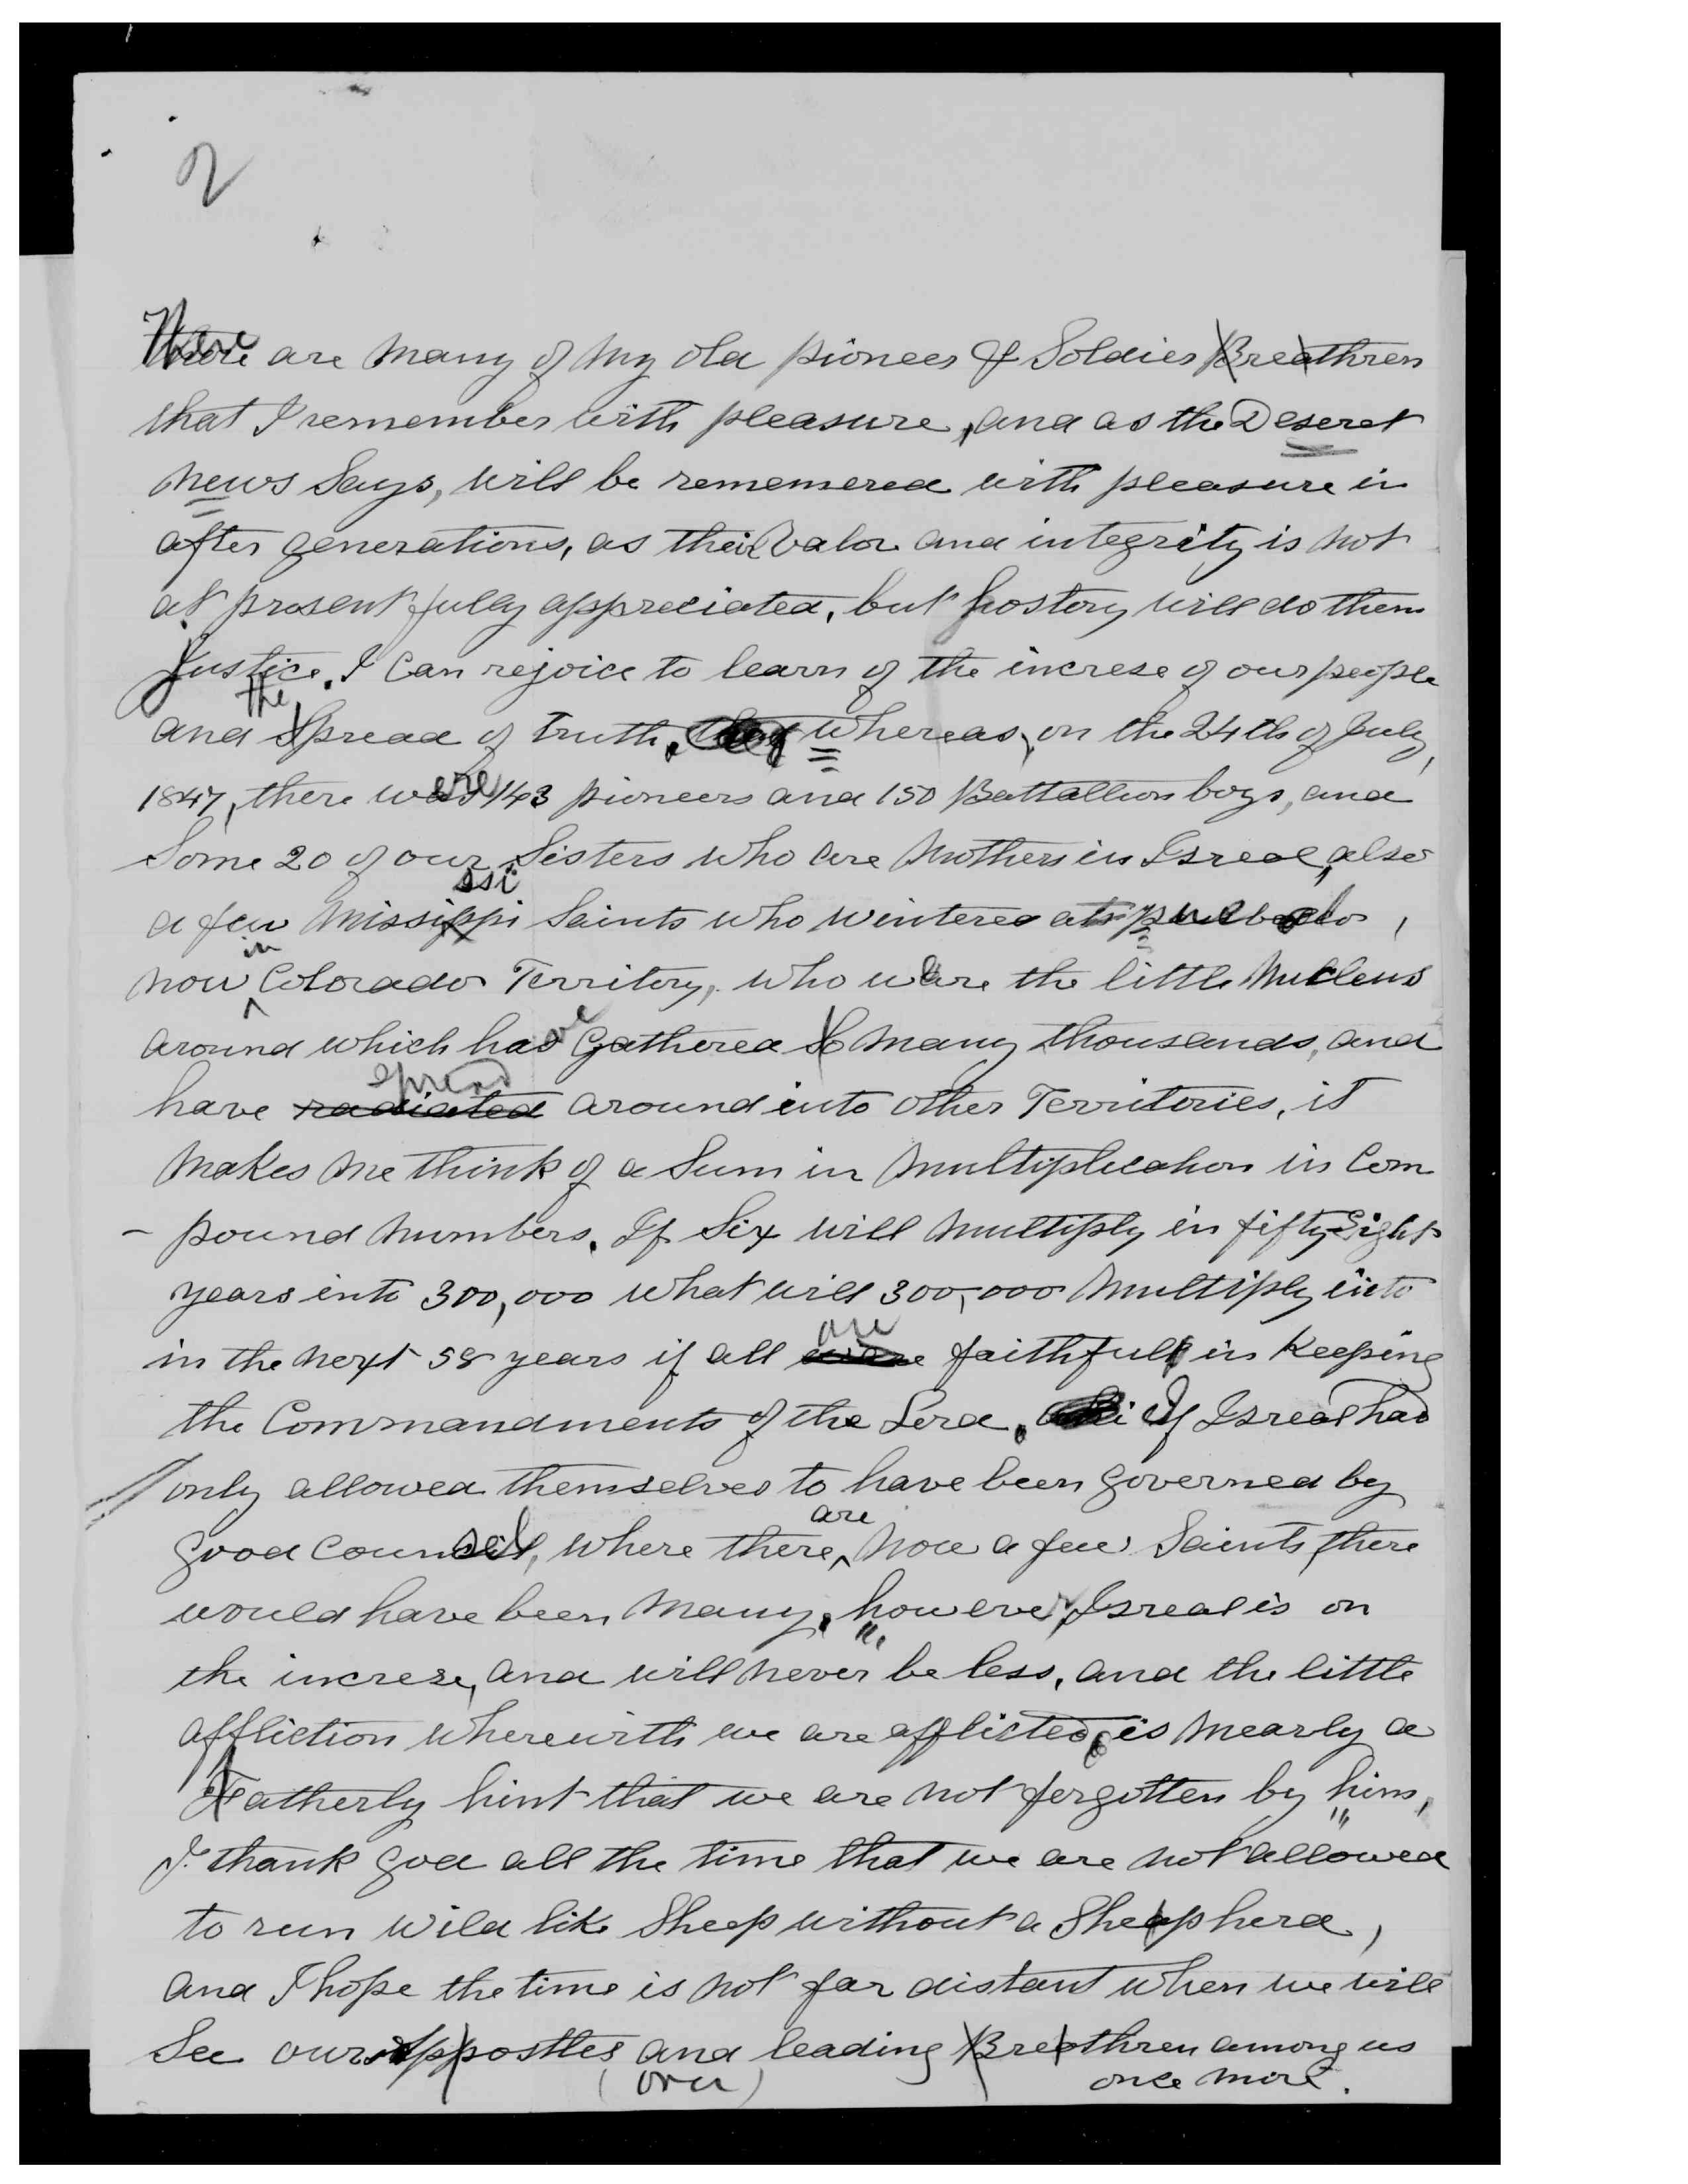 2
There are many of my old pioneer & Soldier Breathren
that I remember with pleasure, and as the Deseret
News Says, will be rememered with pleasure in
after generations, as their valor and integrity is not
at present fully appreciated, but hostory will do them
Justice. I Can rejoice to learn of the increse of our people
the
and Spread of truth. whereas, on the 24th of July,
1847, there were 143 pioneers and 150 Battallion boys, and
Some 20 of our Sisters who are Mothers in Isreal, also
ssi
a few Missippi Saints who wintered at pueblo,
in
now Colorado Territory, who were the little Nucleus
around which have Gathered So many thousands, and
spread
have radiated around into other Territories, it
makes me think of a Sum in Multiplication in Com
- pound Numbers. If Six will Multiply in fifty Eight
years into 300,000 what will 300,000 Multiply into
are
in the next 58 years if all faithfull in Keeping
the Commandments of the Lord. If Isreal had
only allowed themselves to have been governed by
are
good counsel, where there now a few Saints, there
would have been Many. however, Isreal is on
the increse, and will never be less, and the little
affliction wherewith we are afflicted, is mearly a
Fatherly hint that we are not forgotten by him,
I thank god all the time that we are not allowed
to run wild like Sheep without a Sheapherd,
and I hope the time is not far distant when we will
See our Appostles and leading Breathren among us
(over) once more.